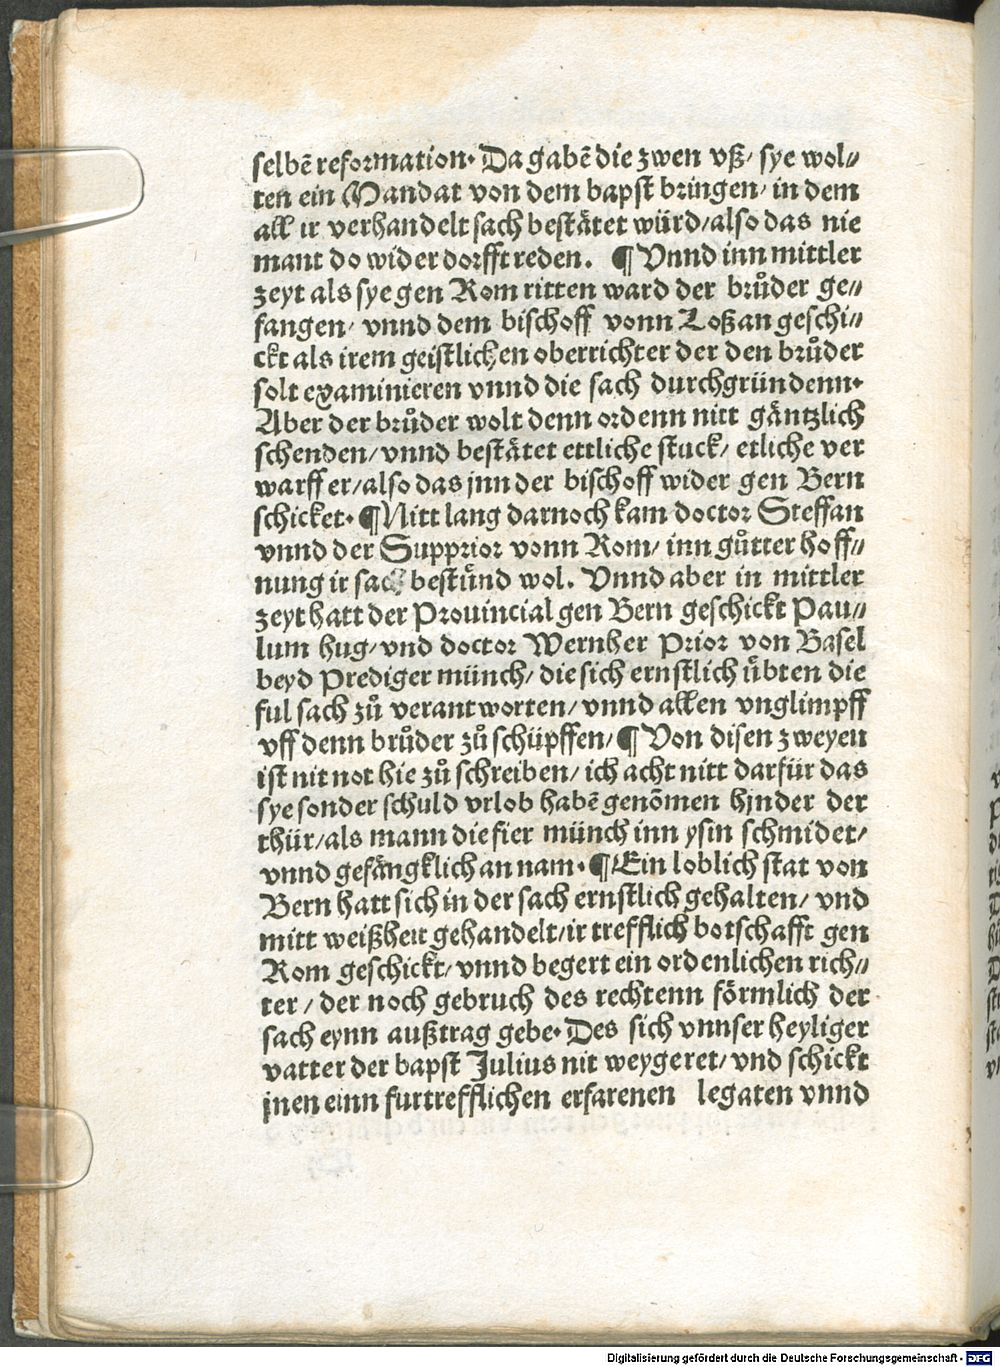 selbē reformation. Da gabē die zwen vß/ sye wol⸗
ten ein Mandat von dem bapst bringen/ in dem
all ir verhandelt sach bestätet würd/also das nie
mant do wider dorfft reden. ¶ Vnnd inn mittler
zeyt als sye gen Rom ritten ward der brůder ge⸗
fangen/ vnnd dem bischoff vonn Loßan geschi⸗
ckt als irem geistlichen oberrichter der den brůder
solt examinieren vnnd die sach durchgründenn.
Aber der brůder wolt denn ordenn nitt gäntzlich
schenden/vnnd bestätet ettliche stuck/ etliche ver
warff er/also das jnn der bischoff wider gen Bern
schicket. ¶Nitt lang darnoch kam doctor Steffan
vnnd der Supprior vonn Rom/ inn gůtter hoff⸗
nung ir sach bestünd wol. Vnnd aber in mittler
zeyt hatt der Prouincial gen Bern geschickt Pau⸗
lum hug/vnd doctor Wernher Prior von Basel
beyd Prediger münch/ die sich ernstlich übten die
ful sach zů verantworten/ vnnd allen vnglimpff
vff denn brůder zů schüpffen/ ¶ Von disen zweyen
ist nit not hie zů schreiben/ ich acht nitt darfür das
sye sonder schuld vrlob habē genōmen hjnder der
thür/als mann die fier münch inn ysin schmidet/
vnnd gefängklich an nam. ¶Ein loblich stat von
Bern hatt sich in der sach ernstlich gehalten/ vnd
mitt weißheit gehandelt/ir trefflich botschafft gen
Rom geschickt/ vnnd begert ein ordenlichen rich⸗
ter/ der noch gebruch des rechtenn förmlich der
sach eynn außtrag gebe. Des sich vnnser heyliger
vatter der bapst Julius nit weygeret/vnd schickt
jnen einn furtrefflichen erfarenen legaten vnnd
Digitalisierung gefördert durch die Deutsche Forschungsgemeinschaft - DFG